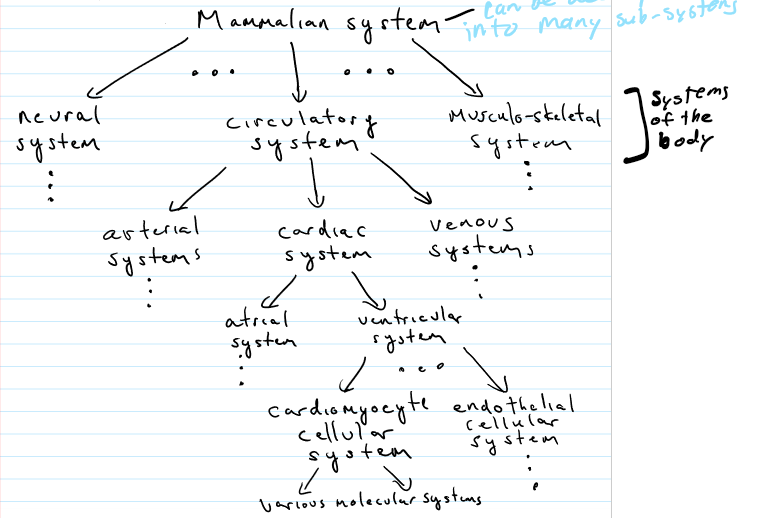 can be
Mammalian system
into many sub-systems
neural
system
circulatory
system
Musculo-skeletal
system
systems
of the
body
arterial
systems
cardiac
system
venous
systems
atrial
system
ventricular
system
cardiomyocyte
cellular
system
endothelial
cellular
system
various molecular systems